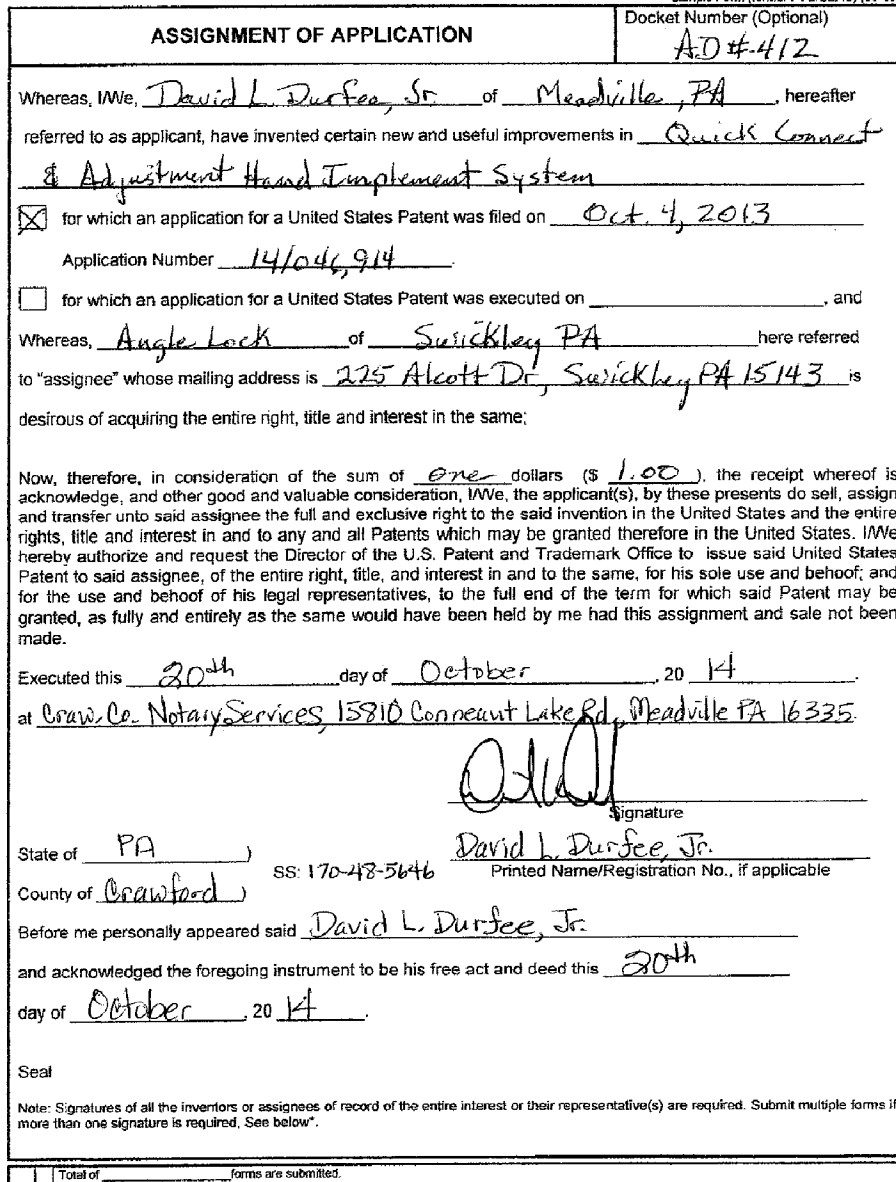 ASSIGNMENT OF APPLICATION
Docket Number (Optional)
AD#-412
Whereas, I/We, David L. Durfee, Jr. of Meadville, PA, hereafter
referred to as applicant, have invented certain new and useful improvements in Quick Connect
& Adjustment Hand Implement System
for which an application for a United States Patent was filed on Oct. 4, 2013
Application Number 14/046,914.
for which an application for a United States Patent was executed on , and
Whereas, Angle Lock of Swickley PA here referred
to "assignee" whose mailing address is 225 Alcott Dr, Swickley PA 15143 is
desirous of acquiring the entire right, title and interest in the same;
Now, therefore, in consideration of the sum of one dollars ($ 1.00 ), the receipt whereof is
acknowledge, and other good and valuable consideration, I/We, the applicant(s), by these presents do sell, assign
and transfer unto said assignee the full and exclusive right to the said invention in the United States and the entire
rights, title and interest in and to any and all Patents which may be granted therefore in the United States. I/We
hereby authorize and request the Director of the U.S. Patent and Trademark Office to issue said United States
Patent to said assignee, of the entire right, title, and interest in and to the same, for his sole use and behoof; and
for the use and behoof of his legal representatives, to the full end of the term for which said Patent may be
granted, as fully and entirely as the same would have been held by me had this assignment and sale not been
made.
Executed this 20th day of October, 20 14.
at Craw. Co. Notary Services, 15810 Conneaut Lake Rd., Meadville PA 16335.
Signature
State of PA )
SS: [redacted]
David L. Durfee, Jr.
Printed Name/Registration No., if applicable
County of Crawford )
Before me personally appeared said David L. Durfee, Jr.
and acknowledged the foregoing instrument to be his free act and deed this 20th
day of October, 20 14.
Seal
Note: Signatures of all the inventors or assignees of record of the entire interest or their representative(s) are required. Submit multiple forms if
more than one signature is required, See below*.
Total of forms are submitted.